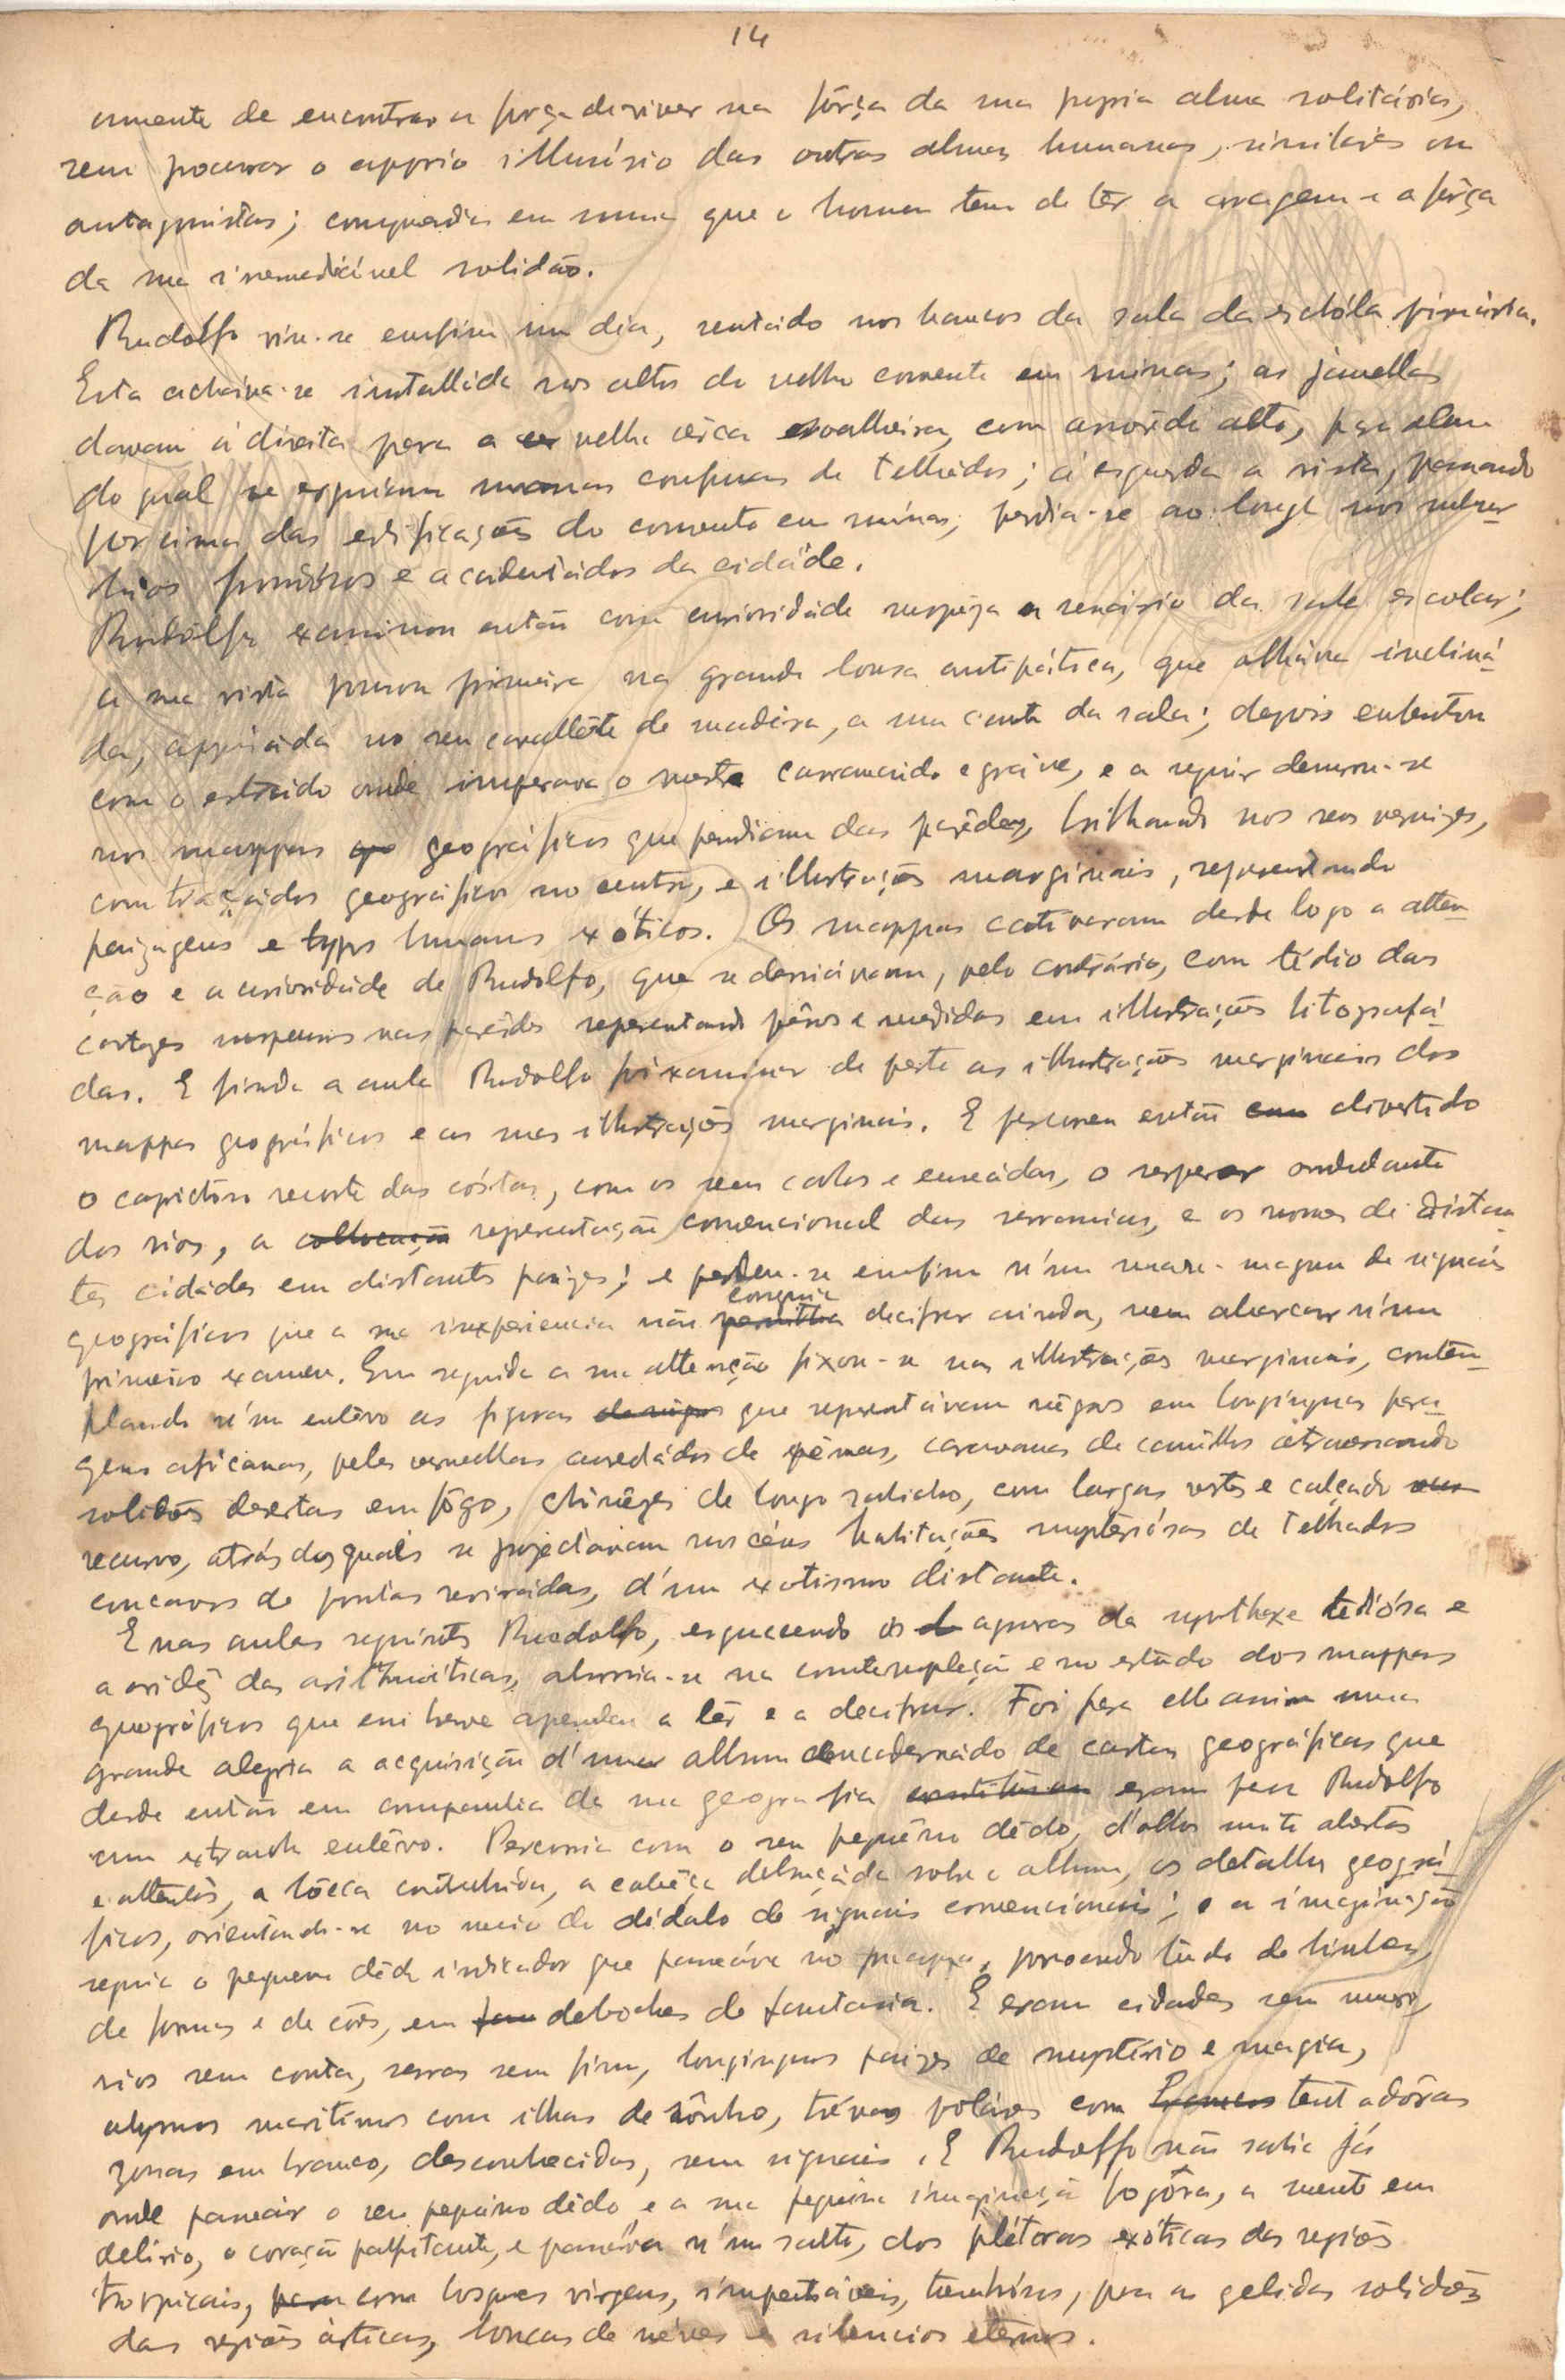 14
mente de encontrar a força de viver na fôrça da sua propria alma solitária,
sem procurar o appoio illusório das outras almas humanas, similares ou
antagonistas; comprendia em suma que o homem tem de têr a coragem e a fôrça
da sua irremediável solidão.
Rudolfo viu-se emfim um dia, sentado nos bancos da sala da eschóla primária.
Esta achava-se installáda nos altos do velho convento em ruinas; as janellas
davam á direita para a velha cêrca, com arvorêdo alto, para alem
do qual se erguiam massas confusas de telhados; á esquerda a vista, passando
por cima das edificações do convento em ruínas, perdia-se ao longe nos subur-
bios fumósos e accidentádos da cidáde.
Rudolfo examinou então com curiosidáde suspeça o scenário da sala escolar;
a sua vista pousou primeiro na grande lousa antipática, que olháva incliná-
da, appoiáda no seu cavallête de madeira, a um canto da sala; depois embateu
com o estrádo onde imperava o mestre carrancudo e gráve, e a seguir demorou-se
nos mappas geográficos que pendiam das parêdes, brilhando nos seus vernizes,
com traçádos geográficos no centro, e illustrações marginais, representando
paizagens e typos humanos exóticos. Os mappas cativaram desde logo a atten-
ção e a curiosidáde de Rudolfo, que se desviávam, pelo contrário, com tédio das
cartazes suspensos nas parêdes representando pêsos e medidas em illustrações litografá-
das. E finda a aula Rudolfo foi examinar de perto as illustrações marginais dos
mappas geográficos e as suas illustrações marginais. E percorreu então divertido
o caprichoso recorte das cóstas, com os seus cabos e enseádas, o serpear ondulante
dos rios, a representação convencional das serranias, e os nomes de distan-
tes cidádes em distantes paizes; e perdeu-se emfim n'um mare-magnum de signais
geográficos que a sua inexperiencia não conseguia decifrar ainda, nem abarcar n'um
primeiro examen. Em seguida a sua attenção fixou-se nas illustrações marginais, contem-
plando n'um enlêvo as figuras que representávam nêgros em longinquas para-
gens africanas, peles vermelhas enredádos de pênas, caravanas de camêllos atravessando
solidões desertas em fôgo, chinêzes de longo rabicho, com largas vestes e calçado
recurvo, atrás dos quais se projectávam nos céus habitações mysteriósas de telhados
concavos de pontas reviradas, d'um exotismo distante.
E nas aulas seguintes Rudolfo, esquecendo os apuros da synthaxe tediósa e
a aridêz das arithméticas, absorvia-se na contemplação e no estúdo dos mappas
geográficos que em breve aprendeu a lêr e a decifrar. Foi para elle assim uma
grande alegria a acquisição d'um album encadernádo de cartas geográficas que
desde então em companhia da sua geografia eram para Rudolfo
um extranho enlêvo. Percorria com o seu pequêno dêdo, d'olhos muito abertos
e attentos, a bôcca entreaberta, a cabêça debruçáda sobre o album, os detalhes geográ-
ficos, orientando-se no meio do dédalo de signais convencionais; e a imaginação
seguia o pequeno dêdo indicador que passeáva no mappa, povoando tudo de lindas,
de formas e de côres, em deboches de fantasia. E eram cidades sem numero,
rios sem conta, serras sem fim, longinquos paizes de mystério e magia,
abysmos marítimos com ilhas de sônho, trévas poláres com tentadôras
zonas em branco, desconhecidas, sem signais. E Rudolfo não sabia já
onde passeár o seu pequêno dêdo, e a sua pequena imaginação fogôsa, a mente em
delírio, o coração palpitante, e passáva n'um salto, dos plétoras exóticas das regiões
tropicais, com bosques virgens, impenetráveis, tenebrosos, para as gelidas solidões
das regiões árticas, brancas de néves e silencios etérnos.